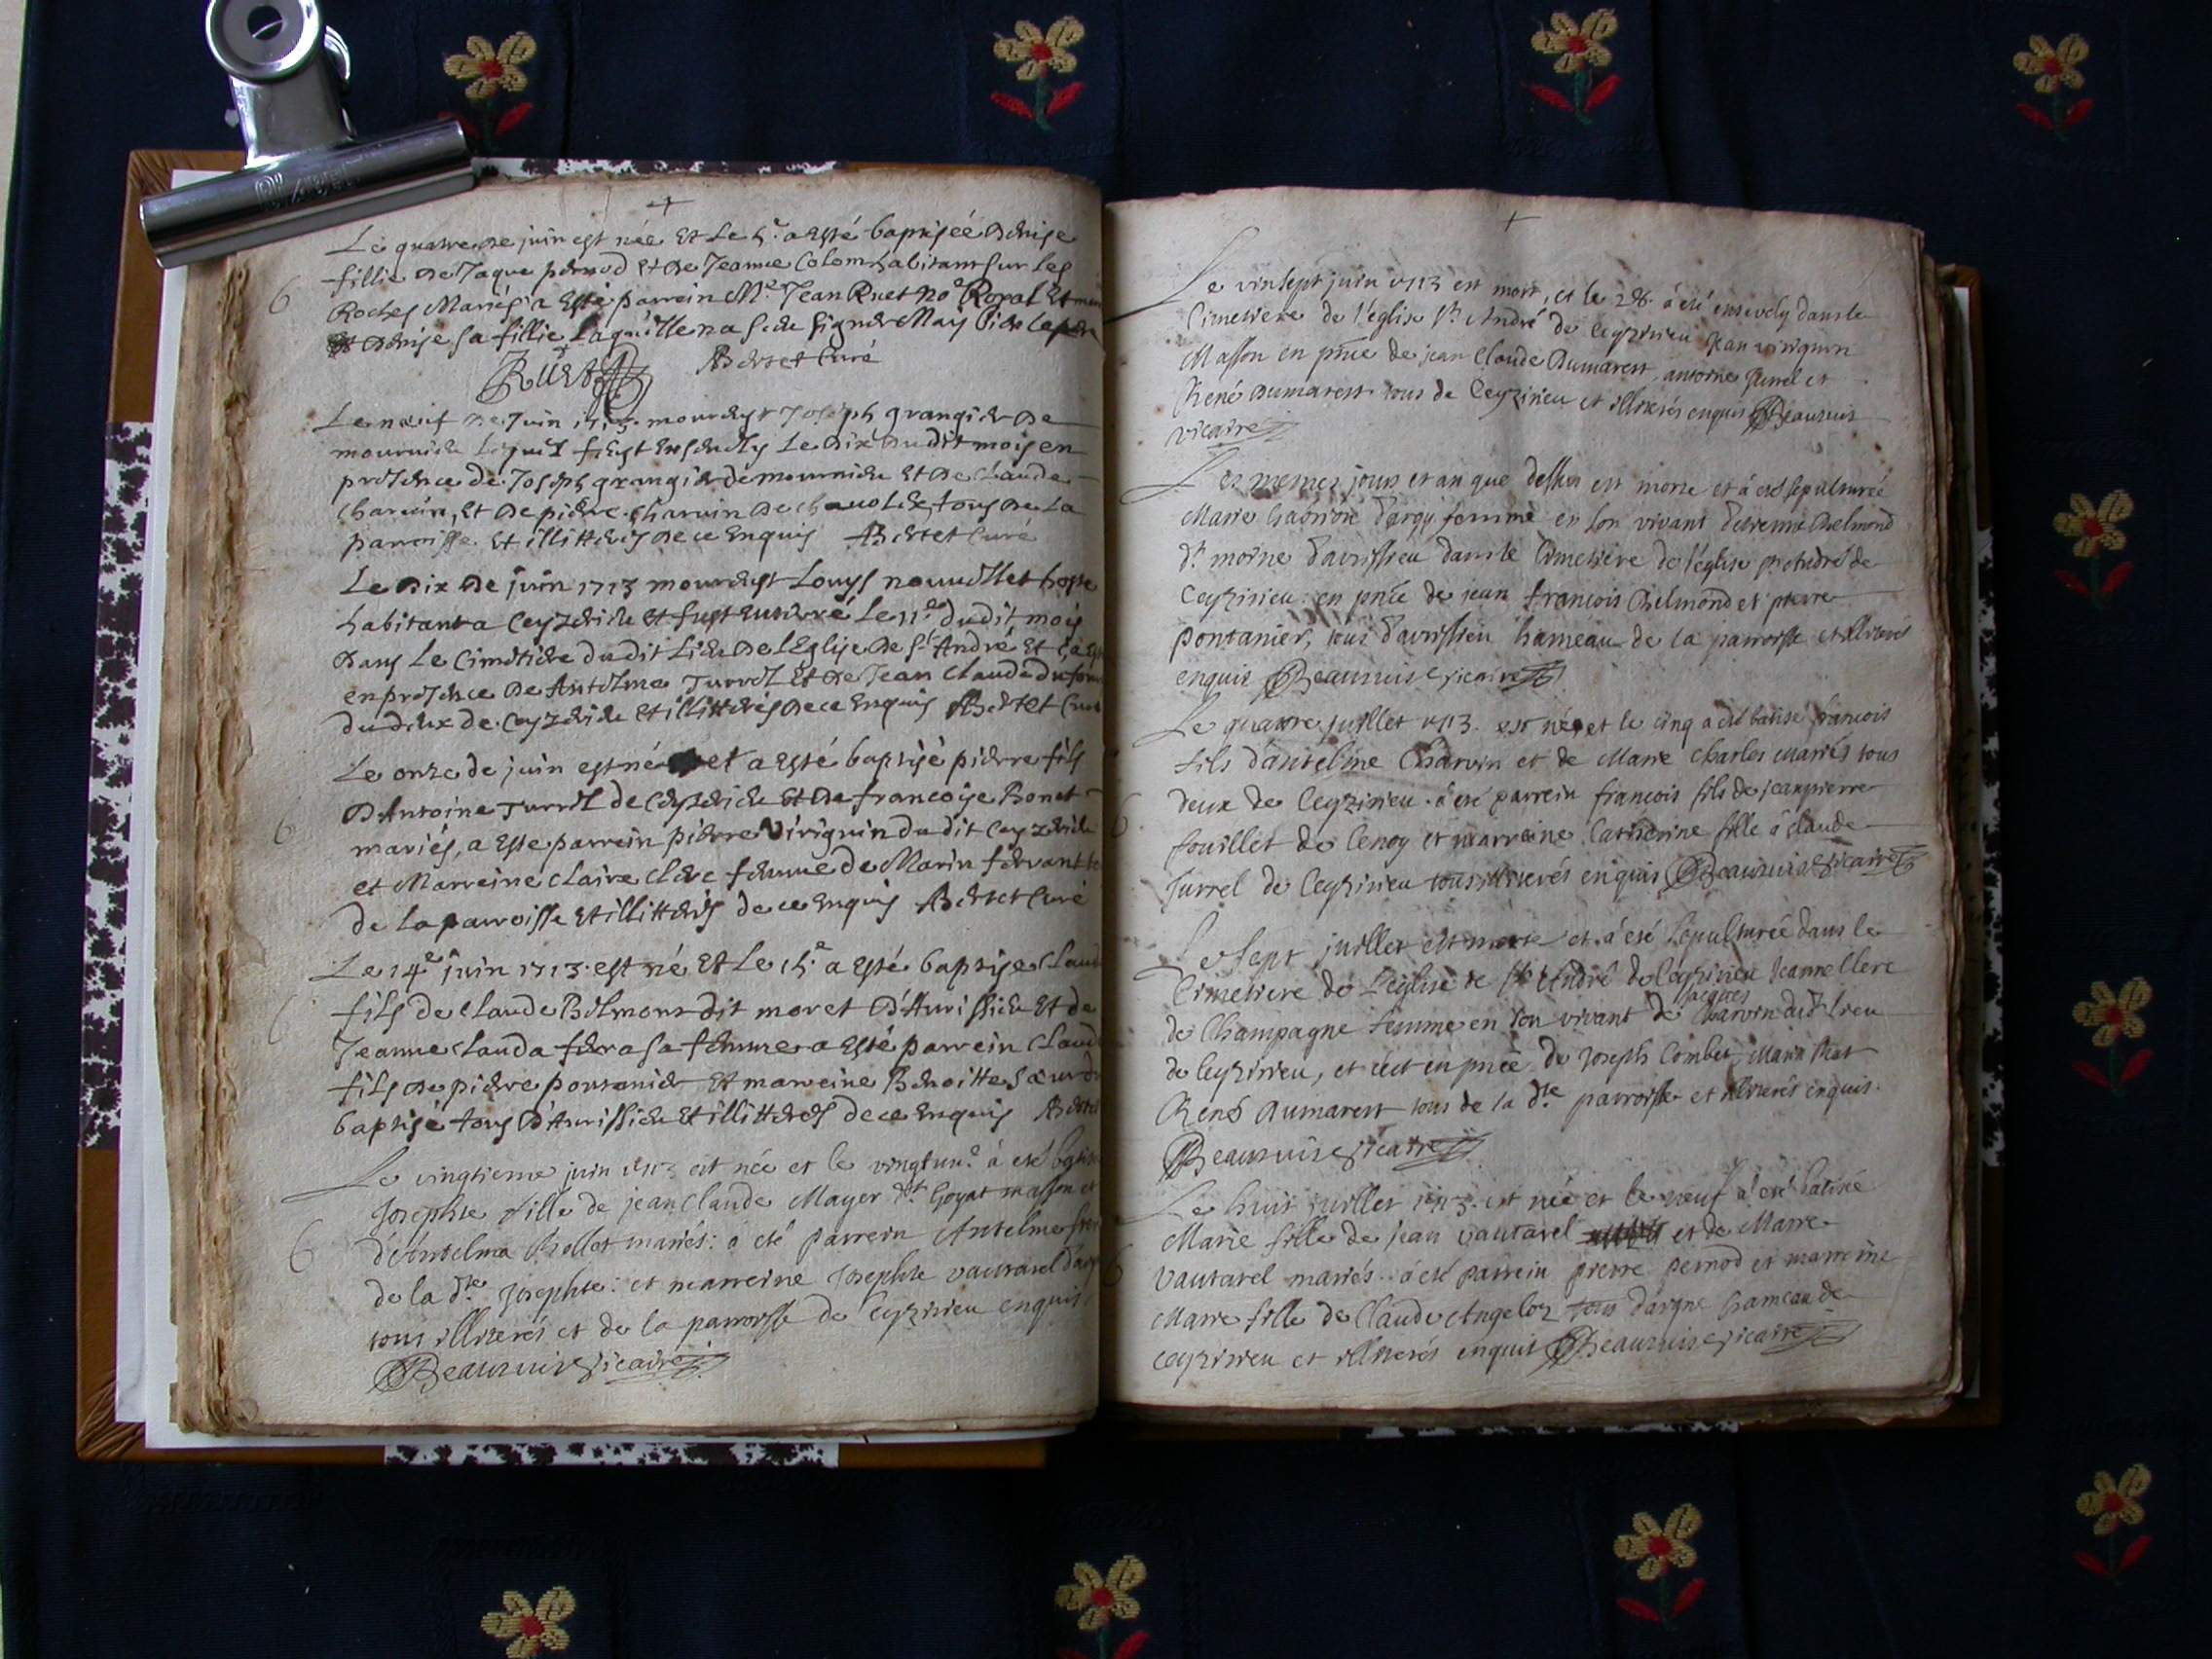 Le quatre de juin est née Et Le 5e a esté baptisée Denise
fillie de Jaque pernod Et de Jeanne Colom habitant sur les
Roches Mariés a Esté parrein Me Jean Ruet noe Royal Et
Et Denise sa fillie Laquelle na sceu signer May bien le pere
Ruet Bertet Curé
Le neuf de Juin 1713 mourust Joseph grangier de
mournieu Lequel feust Ensevely Le dix dudit mois en
presence de Joseph grangier de mournieu Et de Claude
Charvin, Et de pierre charvin de chavolex, tous de La
parroisse Et illitterés de ce Enquis Bertet Curé
Le Dix de juin 1713 mourust Louys nouvellet hoste
habitant a Ceyzerieu Et fust Enterré Le 11e dudit mois
Dans Le Cimetiere dudit Lieu de l'Eglise de St André Et
en presence de Antelme Turrel Et de Jean Claude
du deux de Ceyzerieu Et illitterés de ce Enquis Bertet Curé
Le onze de juin est né et a Esté baptisé pierre fils
D'Antoine Turrel de Ceyzerieu Et de francoise Bonet
mariés, a Esté parrein pierre Virignin dudit Ceyzerieu
et Marreine Claire Clerc femme de Marin fervant
de la parroisse Et illitterés de ce Enquis Bertet Curé
Le 14e juin 1713 est né Et Le 15e a Esté baptisé Claud
fils de Claude Belmont dit moret d'Avrissieu Et de
Jeanne Clauda fera sa femme a Esté parrein Claud
fils de pierre pontanier Et marreine Benoitte Sœur du
baptisé tous d'Avrissieu Et illitterés de ce Enquis Bertet
Le vingtieme juin 1713 est née et le vingtune à eté
Josephte fille de jean Claude Mayer dit Goyat masson et
d'Antelma Rollet mariés: à eté parrein Antelme
de la dte Josephte: et marreine Josephte vautarel
tous illiterés et de la parroisse de Ceyzirieu enquis
Beauruis vicaire
Le vinsept juin 1713 est mort, et le 28 à eté ensevely dans le
Cimetiere de l'église St André de Ceyzirieu Jean virignin
Masson en pnce de jean Claude Dumarest, antoine Turrel et
René Dumarest tous de Ceyzirieu et illiterés enquis Beauruis
vicaire
Les memes jours et an que dessus est morte et à eté sepulturée
Marie Gabrion d'argy femme en son vivant d'etienne Belmond
dt moine d'avrissieu dans le Cimetiere de l'église St André de
Ceyzirieu: en pnce de jean francois Belmond et pierre
pontanier, tous d'avrissieu hameau de la parroisse et illiterés
enquis Beauruis vicaire
Le quatre juillet 1713. est né, et le cinq a eté batisé francois
fils d'antelme Charvin et de Marie Charles Mariés tous
deux de Ceyzirieu. à eté parrein francois fils de jean pierre
fouillet de Cenoy et marreine Catherine fille à Claude
Turrel de Ceyzirieu tous illiterés enquis Beauruis vicaire
Le sept juillet est morte et à eté sepulturée dans le
Cimetiere de l'église de St André de Ceyzirieu Jeanne Clerc
de Champagne femme en son vivant de jacques Charvin dudt lieu
de Ceyzirieu, et c'est en pnce de Joseph Combet,
René Dumarest tous de la dte parroisse et illiterés enquis.
Beauruis vicaire
Le huit juillet 1713. est née et le neuf à eté batisée
Marie fille de Jean vautarel et de Marie
Vautarel mariés. à eté parrein pierre pernod et marreine
Marie fille de Claude Angeloz tous d'argne hameau de
Ceyzirieu et illiterés enquis Beauruis vicaire